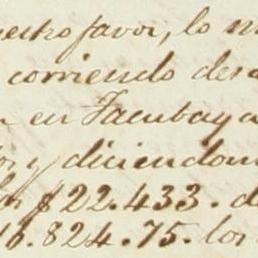 uestro favor, lo m
corriendo des
en Tacubaya
y diciendom
$22.433. d
16.824.75. los